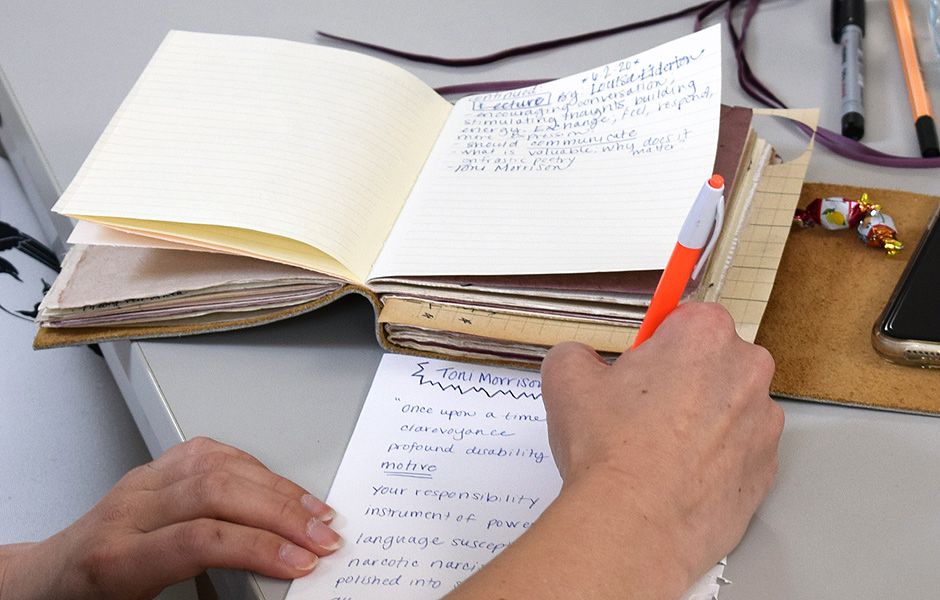 *4.2.20*
continued
Lecture By: Louisa
- encouraging conversation,
stimulating thoughts, building
energy. Exchange, feel, respond,
mere expression
- should communicate
- what is valuable, why does it
matter
poetry
- Toni Morrison
Toni Morrison
"once upon a time
clarevoyance
profound disability
motive
your responsibility
instrument of powe
language suscept
narcotic narcis
polished into s